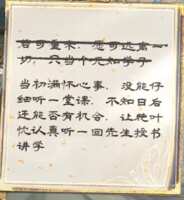 若可重来，愿可远离一
切，只当个无知学子
当初满怀心事，没能仔
细听一堂课，不知日后
还能否有机会，让绝叶
忱认真听一回先生授书
讲学